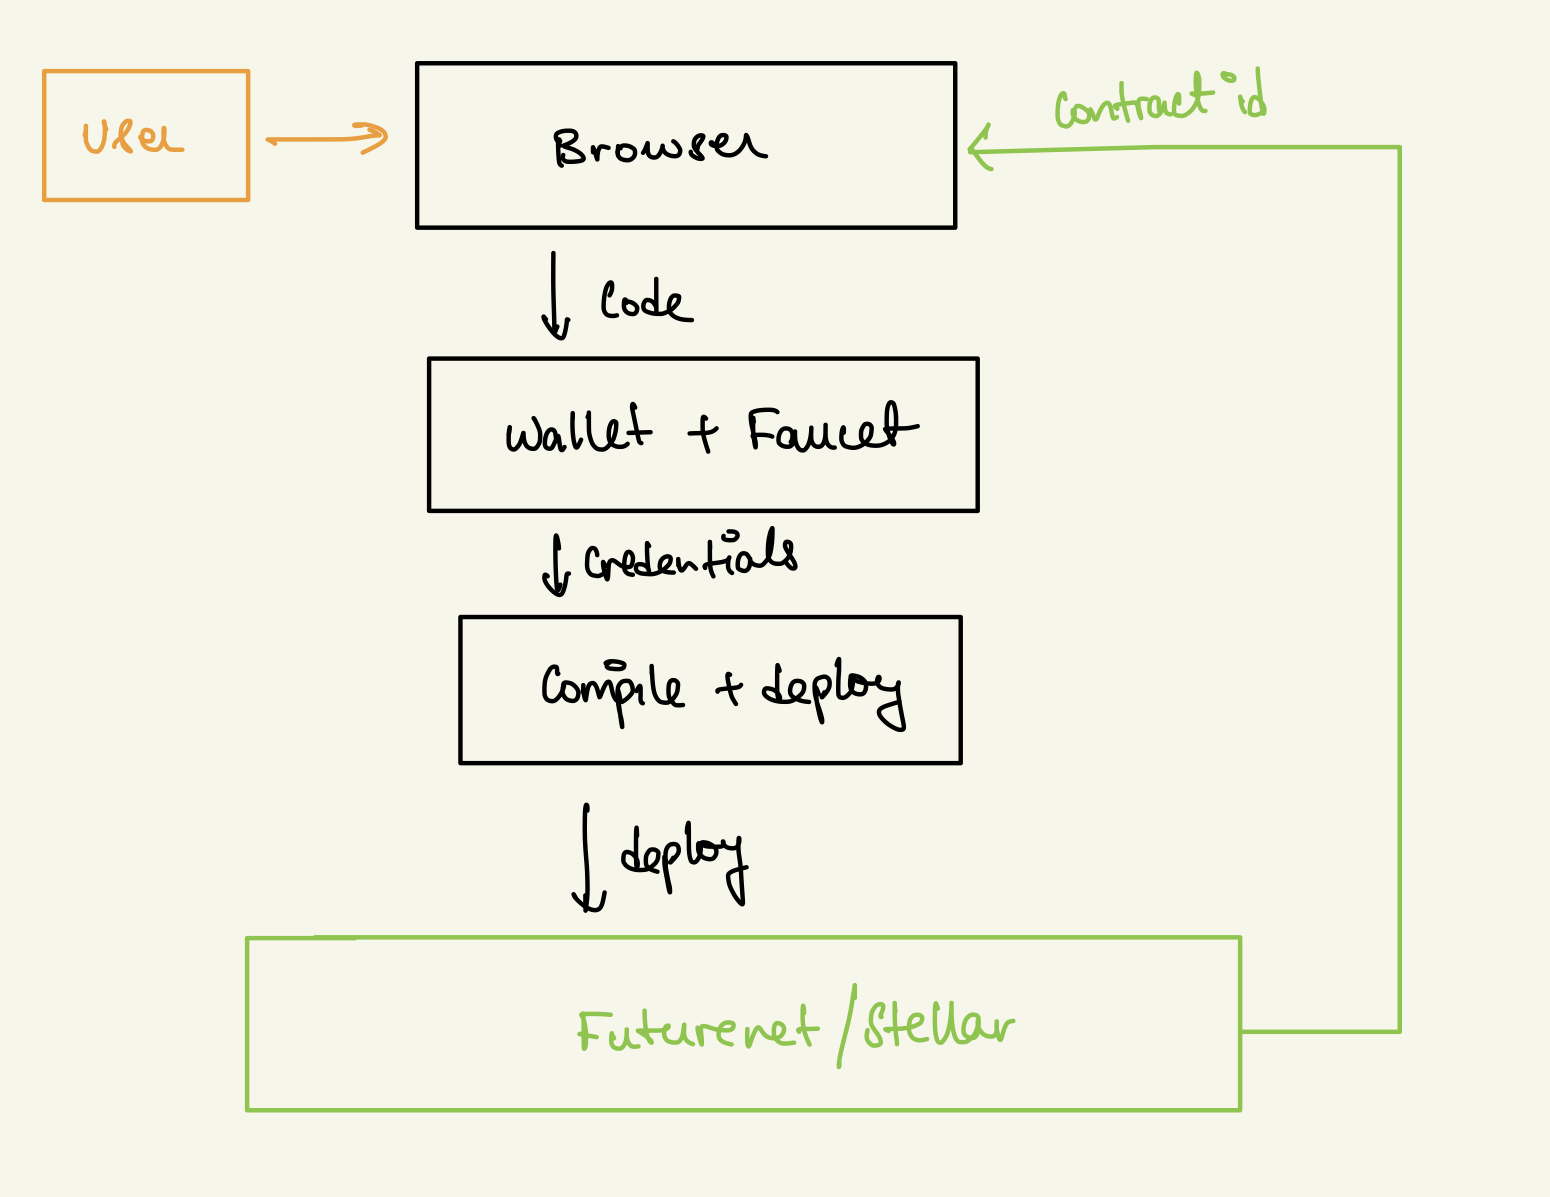 User
Browser
Contract id
Code
Wallet + Faucet
Credentials
Compile + deploy
deploy
Futurenet / Stellar